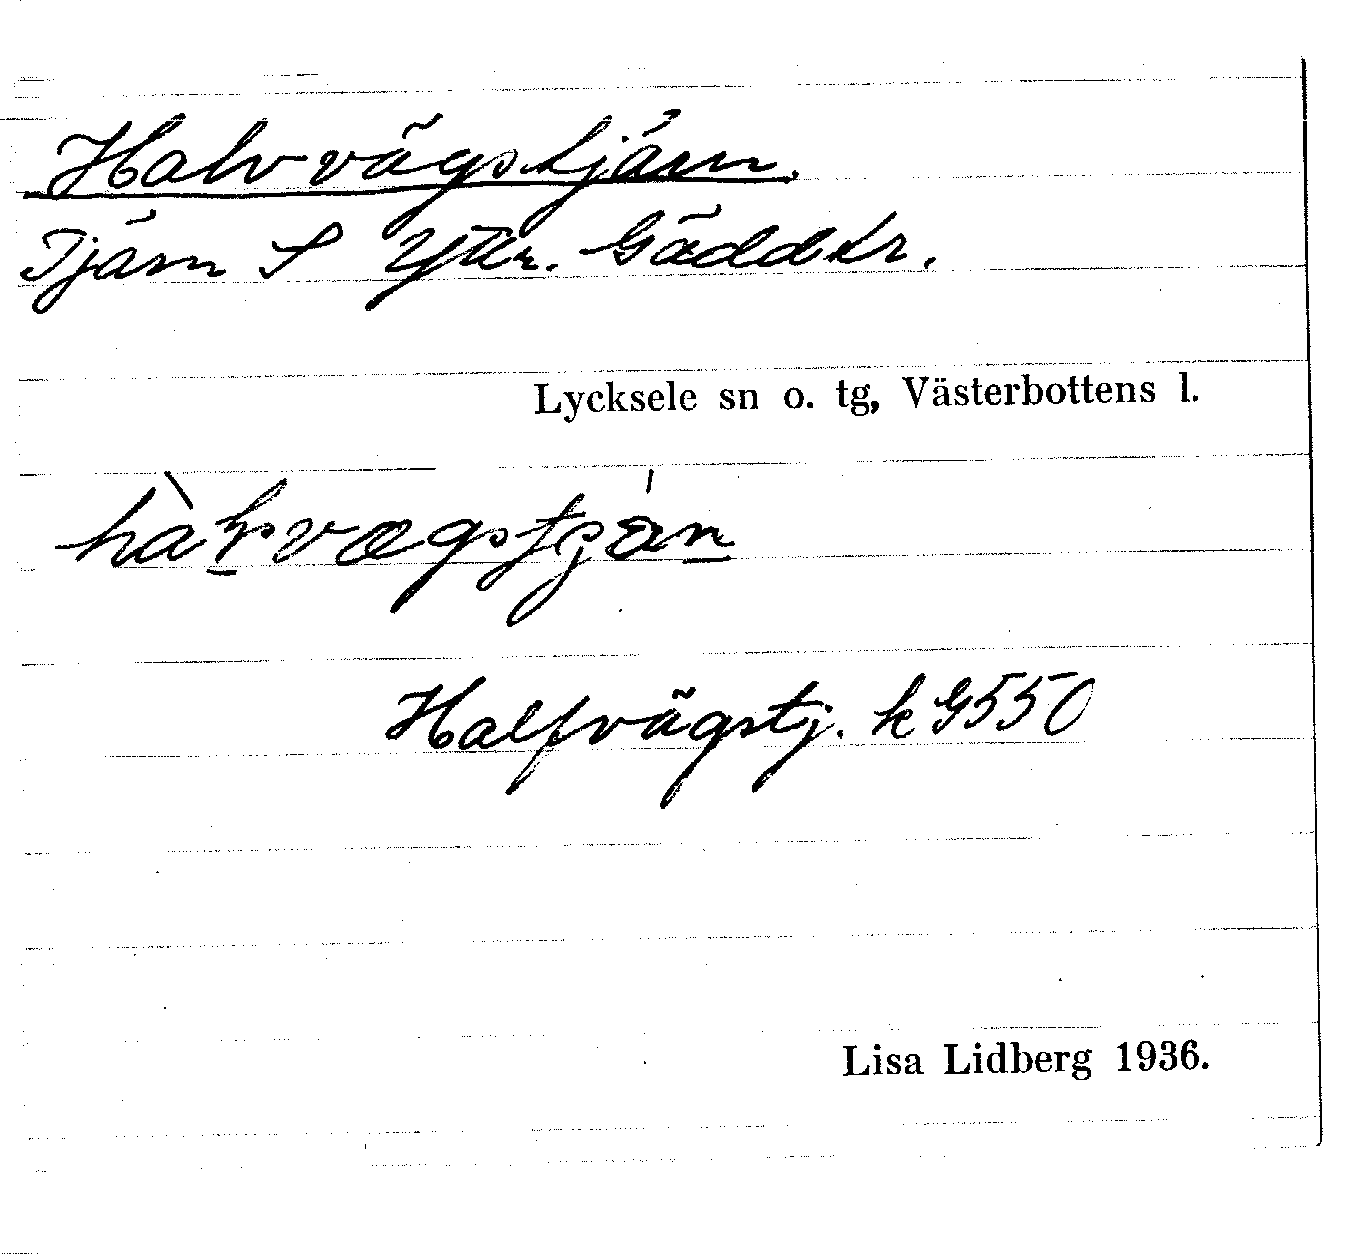 Halvvägstjärn.
Tjärn S Yttr. Gäddtr.
Lycksele sn o. tg, Västerbottens l.
Halfvägstj. k G550
Lisa Lidberg 1936.